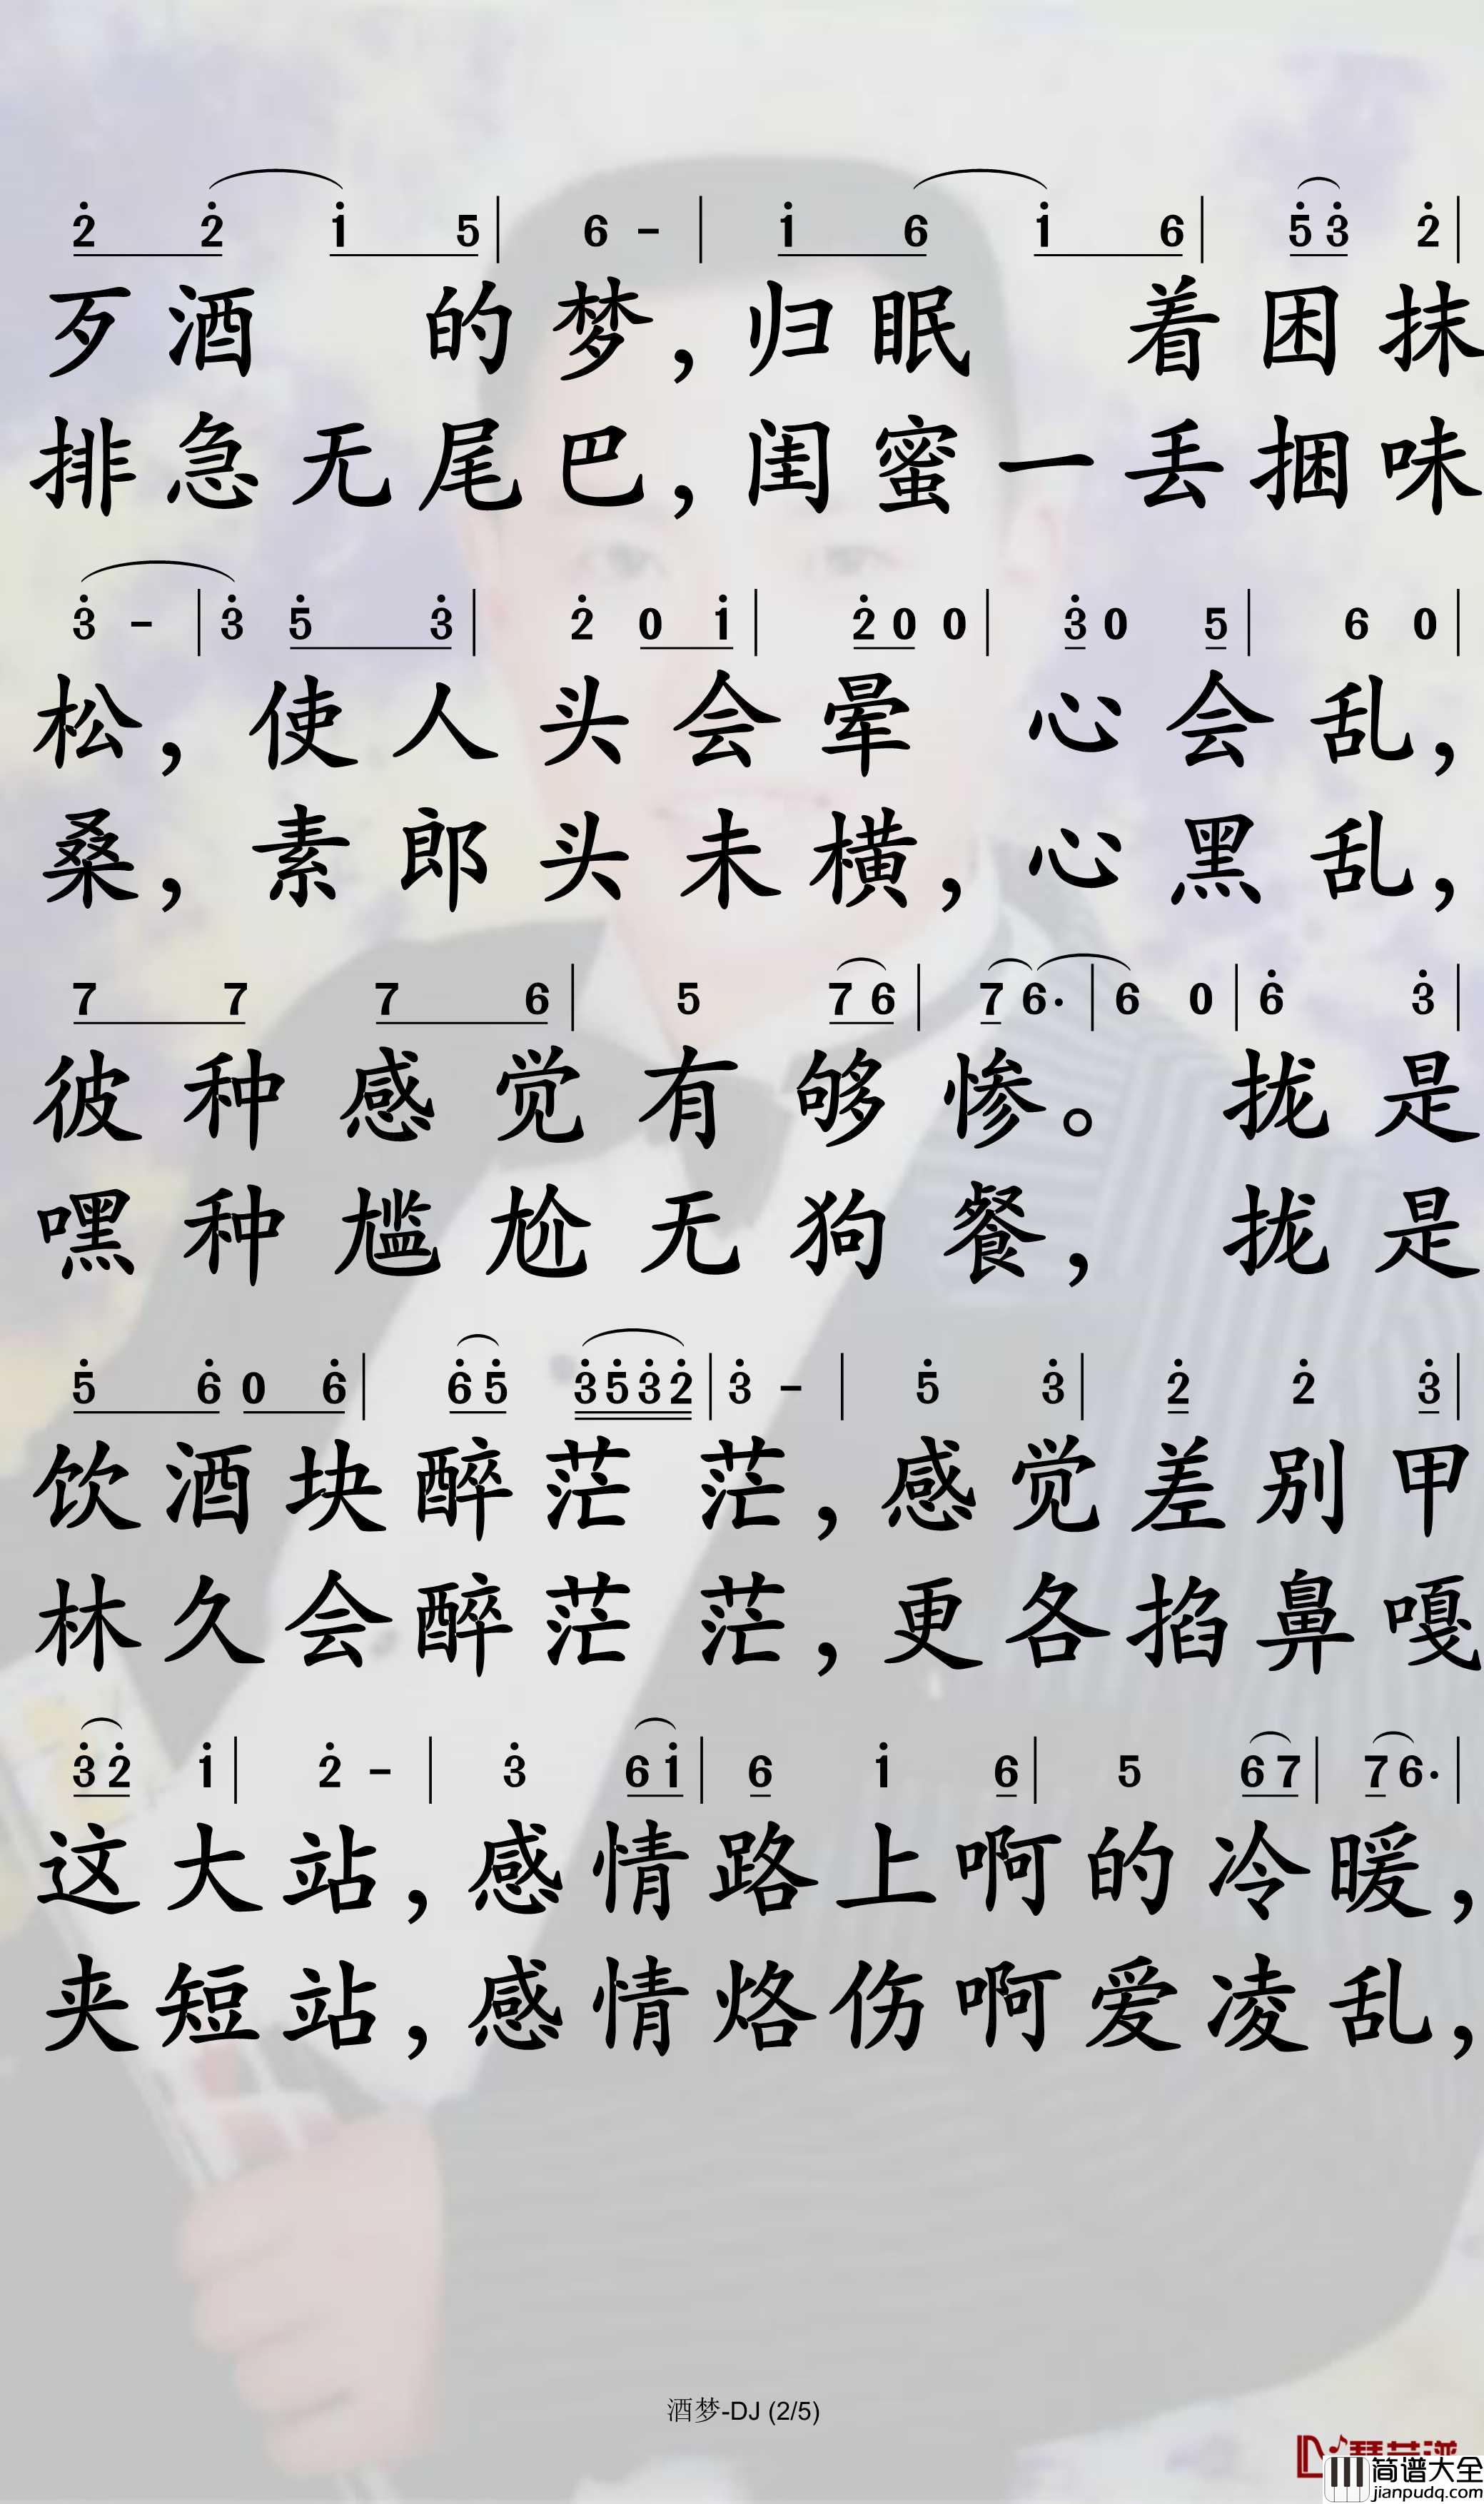 2 2 1 5 | 6 - | 1 6 1 6 | 5 3 2 |
歹酒 的梦，归眠 着困抹
排急无尾巴，闺蜜一丢捆味
3 - | 3 5 3 | 2 0 1 | 2 0 0 | 3 0 5 | 6 0 |
松，使人头会晕 心会乱，
桑，素郎头未横，心黑乱，
7 7 7 6 | 5 7 6 | 7 6· | 6 0 | 6 3 |
彼种感觉有够惨。 拢是
嘿种尴尬无狗餐， 拢是
5 6 0 6 | 6 5 3 5 3 2 | 3 - | 5 3 | 2 2 3 |
饮酒块醉茫茫，感觉差别甲
林久会醉茫茫，更各掐鼻嘎
3 2 1 | 2 - | 3 6 1 | 6 1 6 | 5 6 7 | 7 6· |
这大站，感情路上啊的冷暖，
夹短站，感情烙伤啊爱凌乱，
酒梦-DJ (2/5)
简谱大全
jianpudq.com